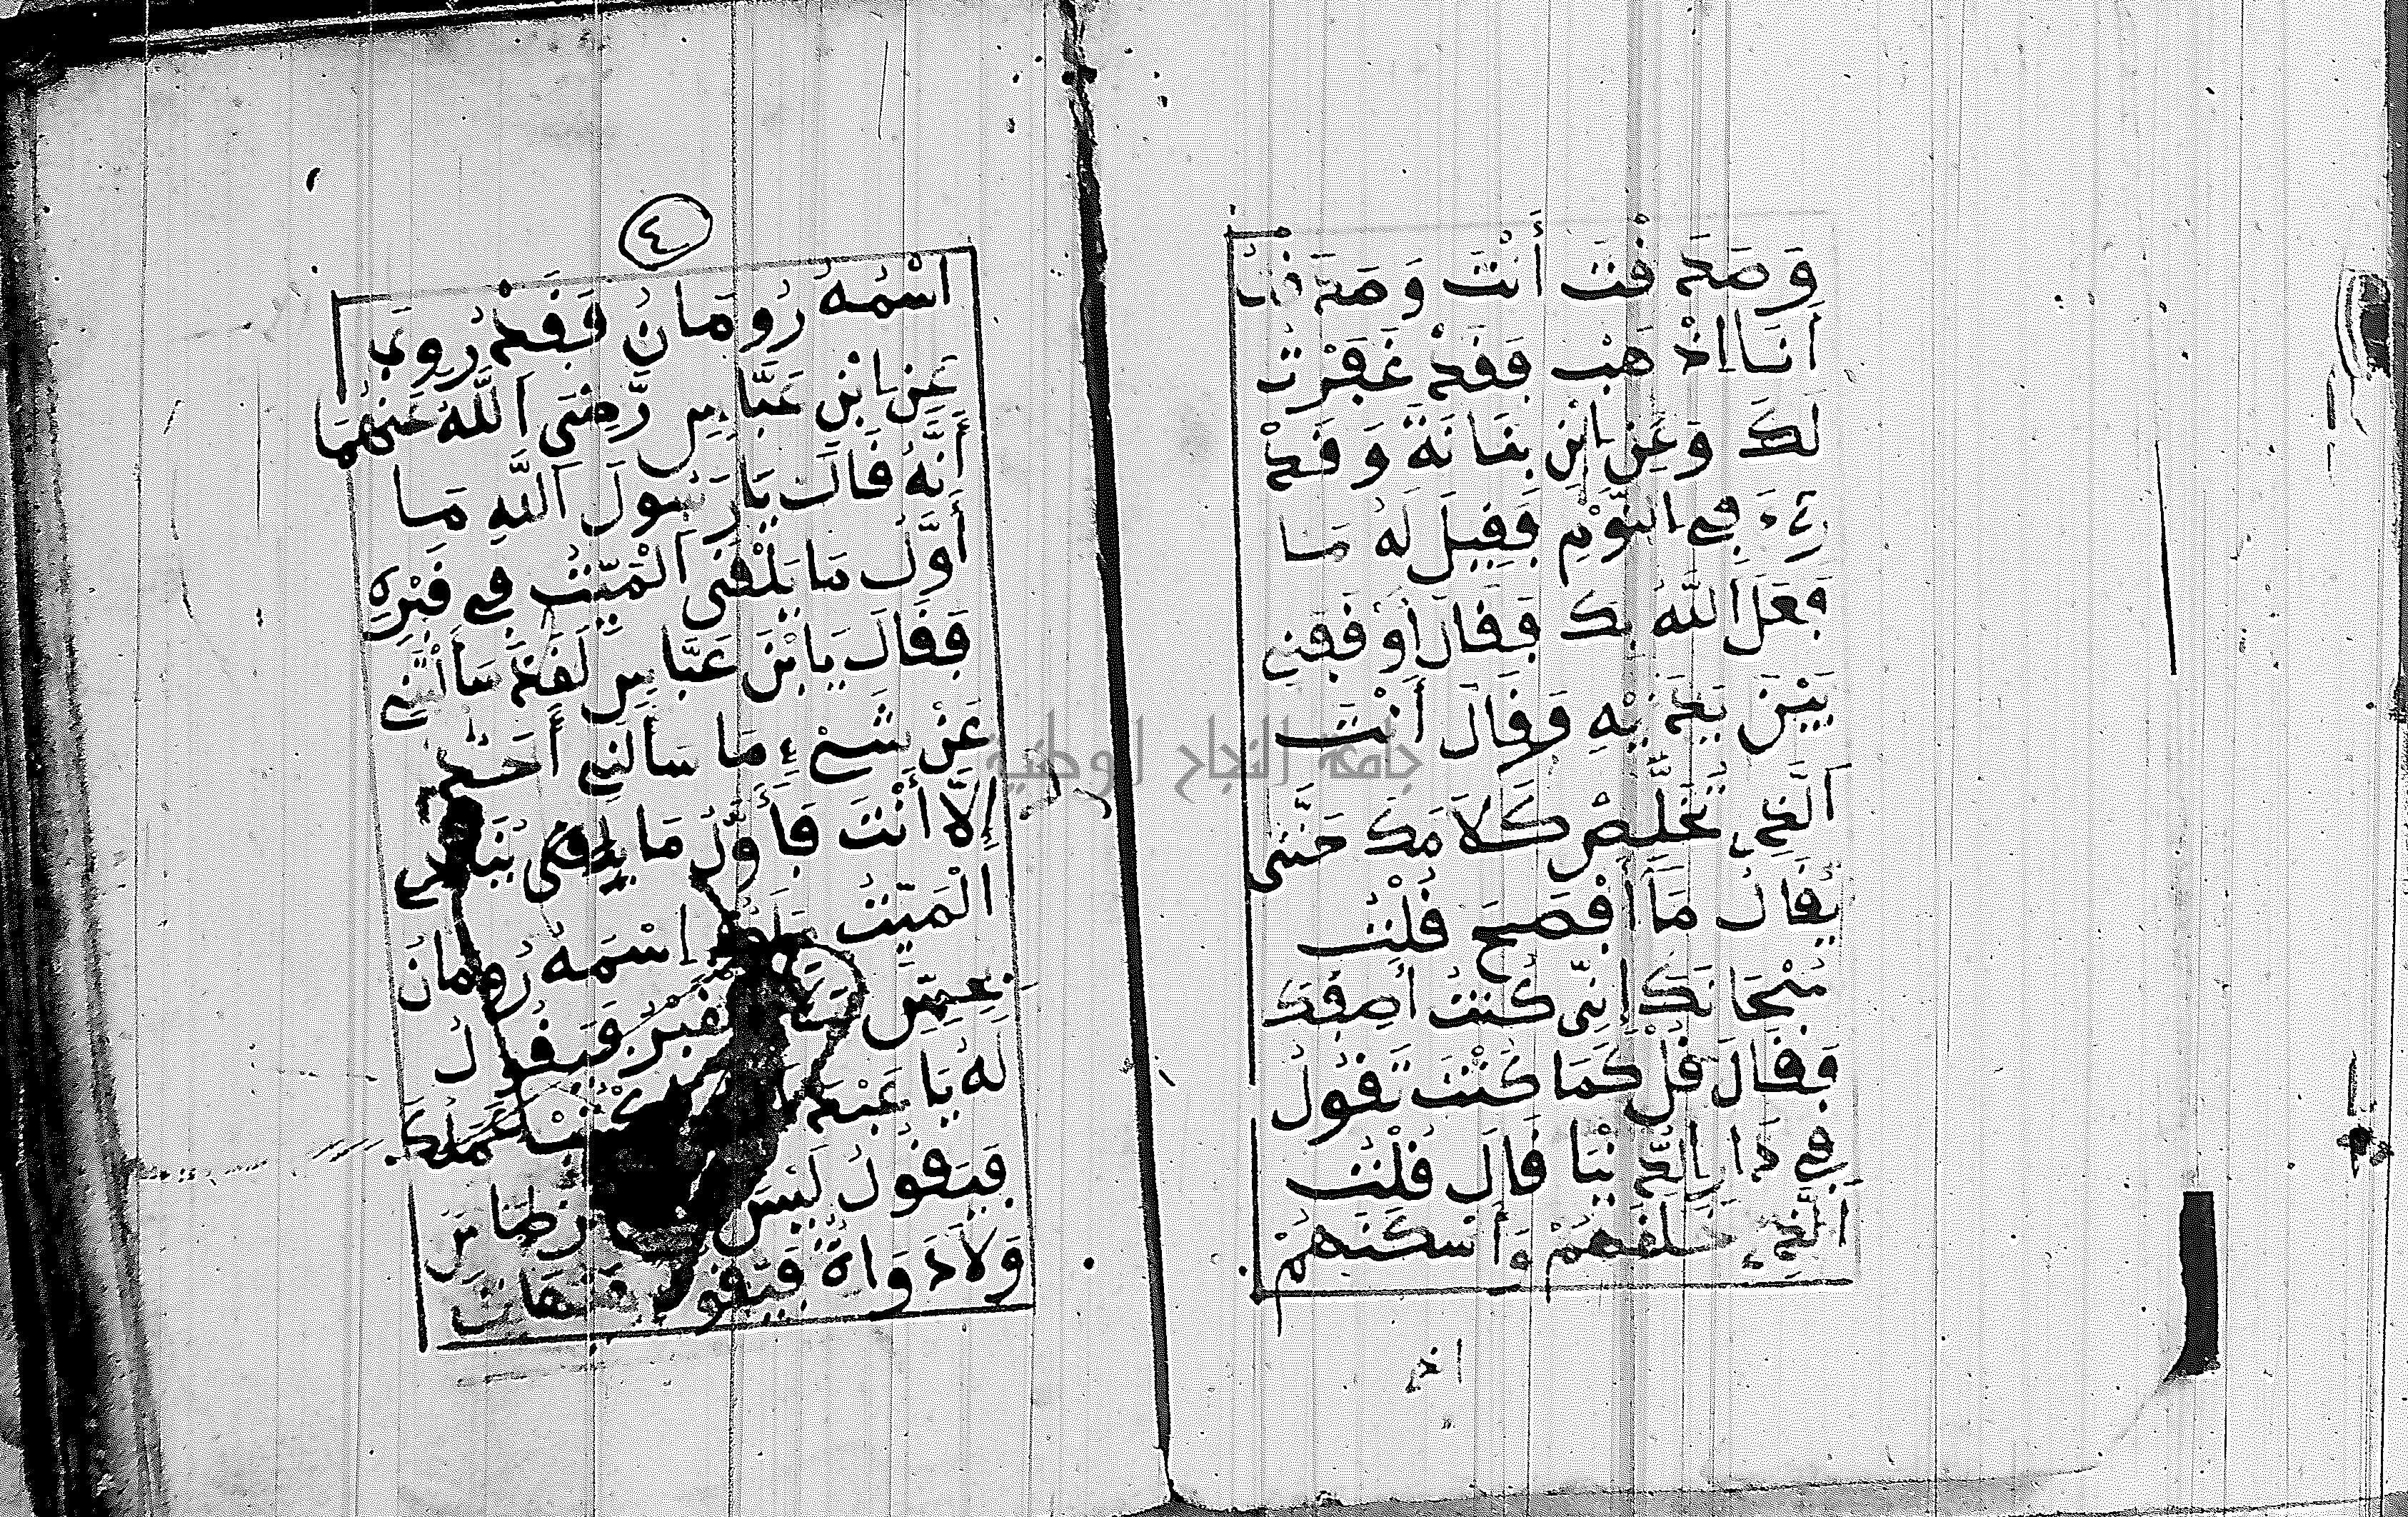 وَصَدَفْتَ أَنْتَ وَصَدَفْتُ
أَنَا اذْهَبْ فَقَدْ غَفَرْتُ
لَكَ وَعَنِ ابْنِ بَنَانَةَ وَقَدْ
رُءِيَ فِي النَّوْمِ فَقِيلَ لَهُ مَا
فَعَلَ اللَّهُ بِكَ فَقَالَ أَوْقَفَنِي
بَيْنَ يَدَيْهِ وَقَالَ أَنْتَ
الَّذِي تُخَلِّصُ كَلَامَكَ حَتَّى
يُقَالُ مَا أَفْصَحَ قُلْتُ
سُبْحَانَكَ إِنِّي كُنْتُ أَصِفُكَ
فَقَالَ قُلْ كَمَا كُنْتَ تَقُولُ
فِي دَارِ الدُّنْيَا قَالَ قُلْتُ
الَّذِي خَلَقَهُمْ وَأَسْكَنَهُمْ
٤
اسْمُهُ رُومَانُ فَقَدْ رُوِيَ
عَنِ ابْنِ عَبَّاسٍ رَّضِيَ اللَّهُ عَنْهُمَا
أَنَّهُ قَالَ يَا رَسُولَ اللَّهِ مَا
أَوَّلُ مَا يَلْقَى الْمَيِّتُ فِي قَبْرِهِ
فَقَالَ يَا ابْنَ عَبَّاسٍ لَقَدْ سَأَلْتَنِي
عَنْ شَيْءٍ مَا سَأَلَنِي أَحَدٌ
إِلَّا أَنْتَ فَأَوَّلُ مَا
الْمَيِّتُ مَلَكٌ اسْمُهُ رُومَانُ
الْقَبْرِ وَيَقُولُ
لَهُ يَا عَبْدَ اكْتُبْ عَمَلَكَ
فَيَقُولُ لَيْسَ قِرْطَاسٌ
وَلَا دَوَاةٌ فَيَقُولُ هَيْهَاتَ
جامعة النجاح الوطنية